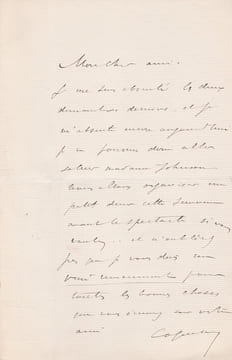 Mon cher ami.
Je me suis absenté les deux
dimanches derniers, et je
m'absente encore aujourd'hui
je ne pourrai donc aller
saluer madame Johnson
nous allons organiser un
petit diner cette semaine
avant le spectacle si vous
voulez.. et n'oubliez
pas que je vous dois un
remerciement pour
toutes les bonnes choses
que vous
ami
Coquelin